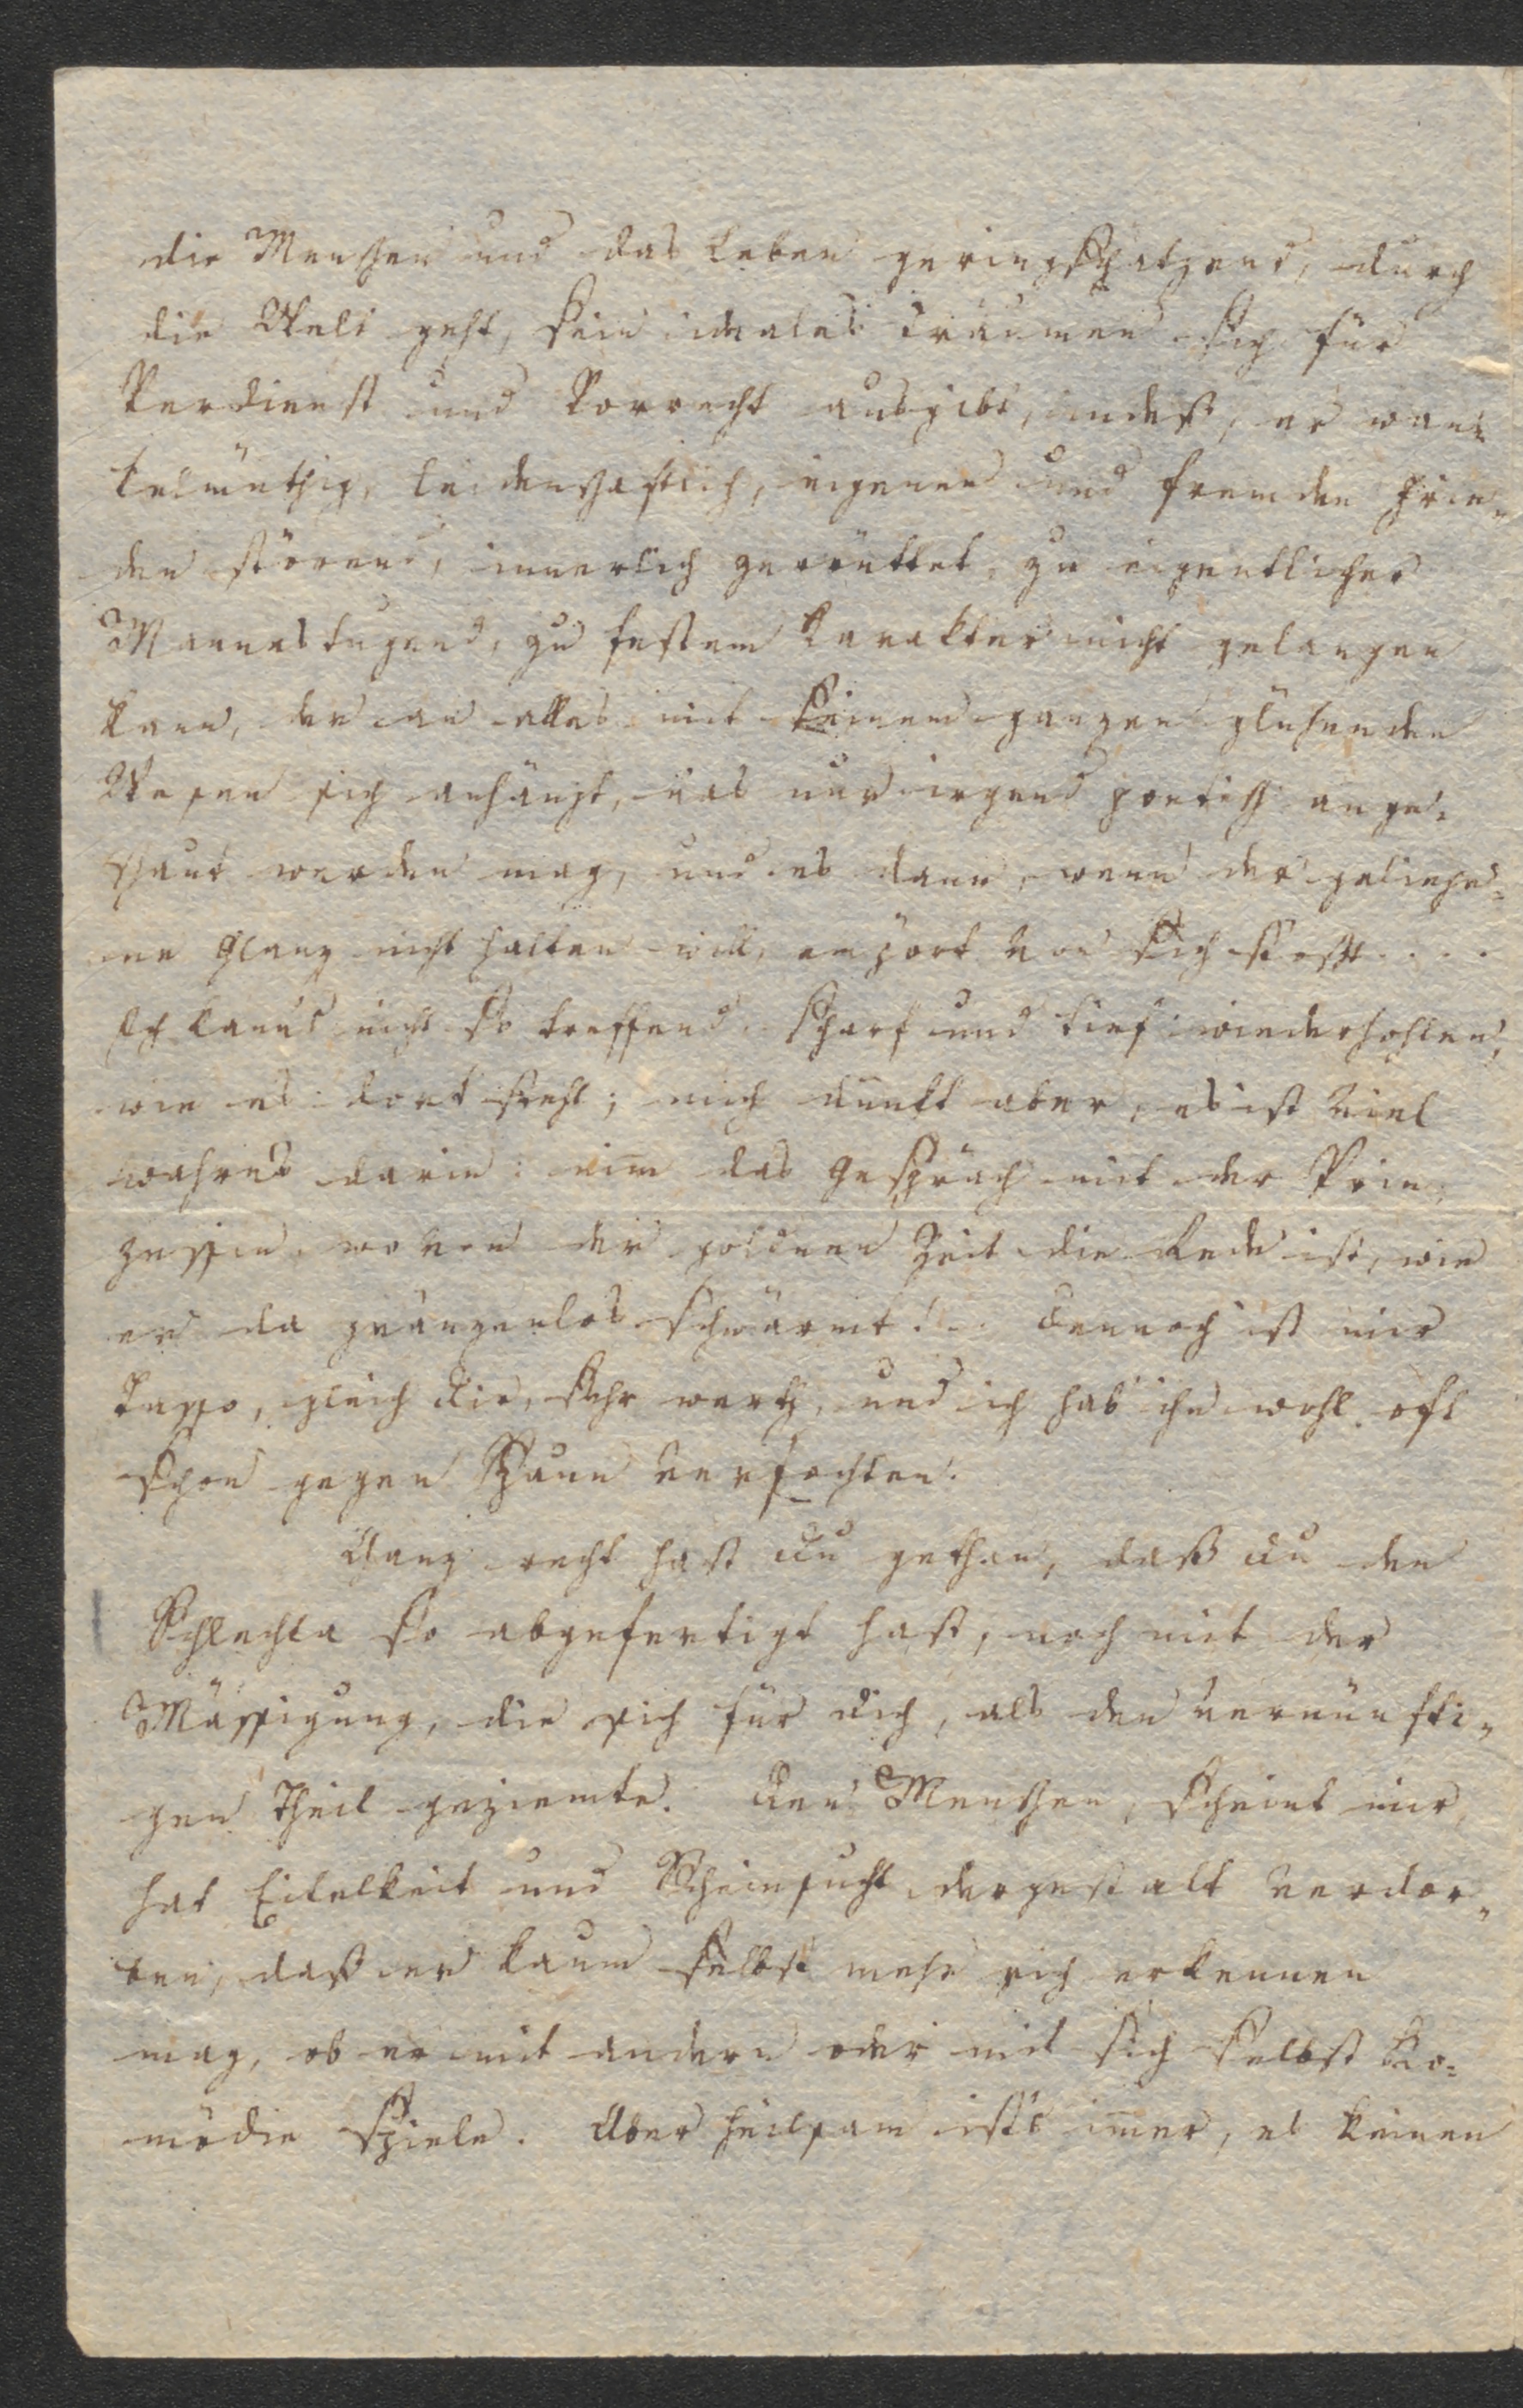 die Menschen und das Leben geringschätzend, durch
die Welt geht, sein ideales Träumen sich für
Verdienst und Vorrecht ausgibt, indeß, er wan-
kelmüthig, leidenschaftlich, eigenen und fremden Frie-
den störend, innerlich zerrüttet, zu eigentlicher
Mannestugend, zu festem Karakter nicht gelangen
kann, der an alles mit seinem ganzen glühenden
Wesen sich anhängt, was nur irgend poetisch ange-
schaut werden mag, und es dann, wenn der geliehe-
ne Glanz nicht halten will, empört von sich stößt....
Ich kann's nicht so treffend, scharf und tief wiederhohlen,
wie es dort steht; mich dünkt aber, es ist viel
wahres darin: nim̅ das Gespräch mit der Prin-
zessin, wo von der goldnen Zeit die Rede ist, wie
er da gränzenlos schwärmt!.. Dennoch ist mir
Tasso, gleich dir, sehr werth, und ich hab' ihn wohl oft
schon gegen Spaun verfochten.
Ganz recht hast du gethan, daß du den
Schlechta so abgefertigt hast, noch mit der
Mässigung, die sich für dich, als den vernünfti-
gen Theil geziemte. Den Menschen, scheint mir,
hat Eitelkeit und Scheinsucht dergestalt verdor-
ben, daß er kaum selbst mehr sich erkennen
mag, ob er mit andern oder mit sich selbst Ko-
mödie spiele. Aber heilsam ist's im̅er, es keinen